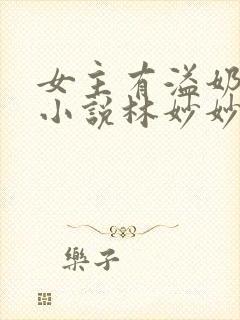 女主有溢奶
小説林妙妙
樂子